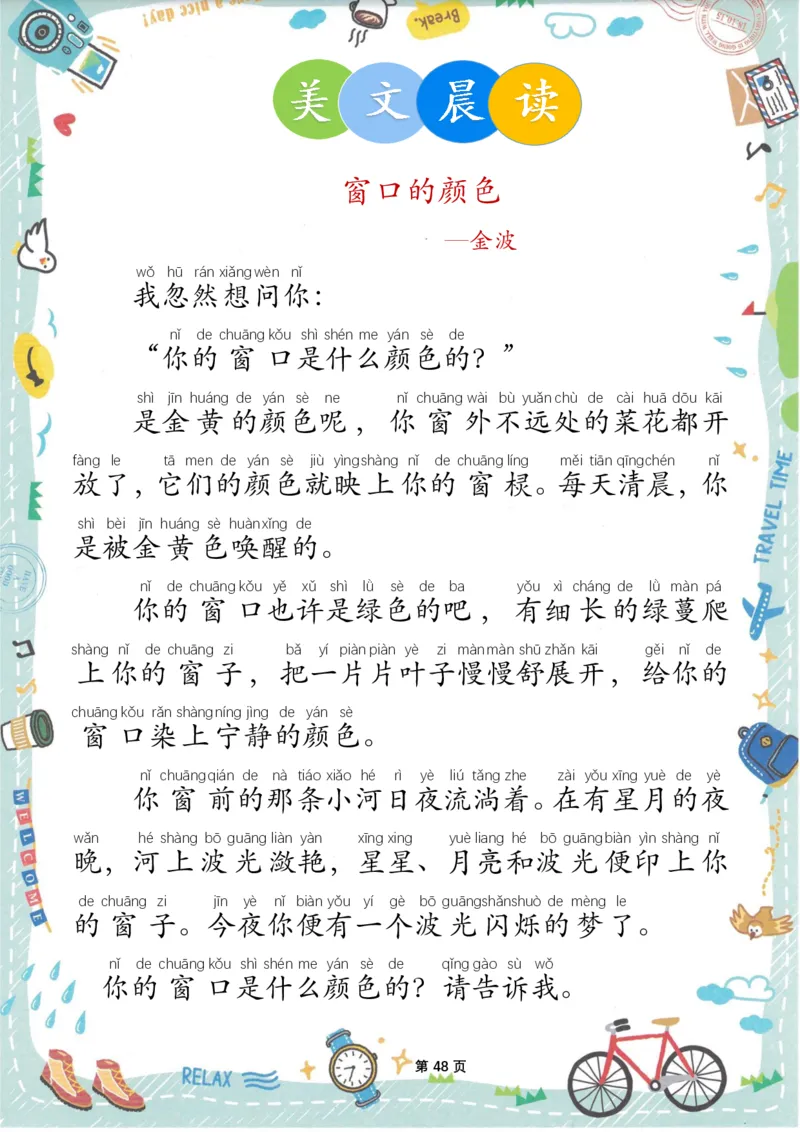 Have a nice day!
Break.
美文晨读
窗口的颜色
—金波
wǒ hū rán xiǎng wèn nǐ
我忽然想问你：
nǐ de chuāng kǒu shì shén me yán sè de
“你的窗口是什么颜色的？”
shì jīn huáng de yán sè ne nǐ chuāng wài bù yuǎn chù de cài huā dōu kāi
是金黄的颜色呢，你窗外不远处的菜花都开
fàng le tā men de yán sè jiù yìng shàng nǐ de chuāng líng měi tiān qīng chén nǐ
放了，它们的颜色就映上你的窗棂。每天清晨，你
shì bèi jīn huáng sè huàn xǐng de
是被金黄色唤醒的。
nǐ de chuāng kǒu yě xǔ shì lǜ sè de ba yǒu xì cháng de lǜ màn pá
你的窗口也许是绿色的吧，有细长的绿蔓爬
shàng nǐ de chuāng zi bǎ yí piàn piàn yè zi màn màn shū zhǎn kāi gěi nǐ de
上你的窗子，把一片片叶子慢慢舒展开，给你的
chuāng kǒu rǎn shàng níng jìng de yán sè
窗口染上宁静的颜色。
nǐ chuāng qián de nà tiáo xiǎo hé rì yè liú tǎng zhe zài yǒu xīng yuè de yè
你窗前的那条小河日夜流淌着。在有星月的夜
wǎn hé shàng bō guāng liàn yàn xīng xing yuè liang hé bō guāng biàn yìn shàng nǐ
晚，河上波光潋艳，星星、月亮和波光便印上你
de chuāng zi jīn yè nǐ biàn yǒu yí gè bō guāng shǎn shuò de mèng le
的窗子。今夜你便有一个波光闪烁的梦了。
nǐ de chuāng kǒu shì shén me yán sè de qǐng gào sù wǒ
你的窗口是什么颜色的？请告诉我。
TRAVEL TIME
WELCOME
RELAX
第 48 页